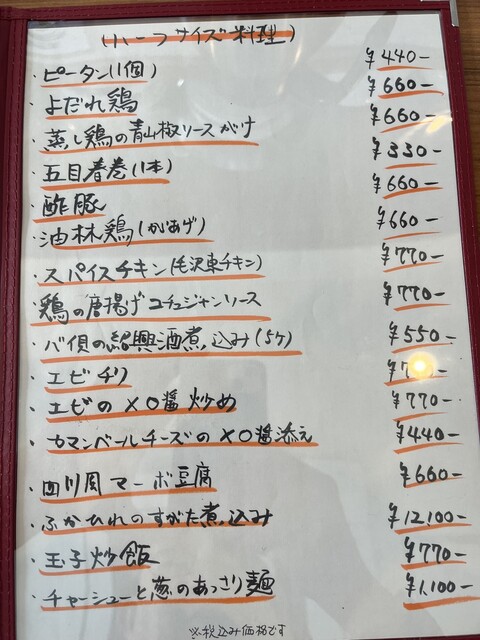 (ハーフサイズ料理)
・ピータン(1個) ¥440-
・よだれ鶏 ¥660-
・蒸し鶏の青山椒ソースがけ ¥660-
・五目春巻(1本) ¥330-
・酢豚 ¥660-
・油林鶏(からあげ) ¥660-
・スパイスチキン(毛沢東チキン) ¥770-
・鶏の唐揚げコチュジャンソース ¥770-
・バイ貝の紹興酒煮込み(5ケ) ¥550-
・エビチリ ¥7
・エビのXO醤炒め ¥770-
・カマンベールチーズのXO醤添え ¥440-
・四川風マーボ豆腐 ¥660-
・ふかひれのすがた煮込み ¥12,100-
・玉子炒飯 ¥770-
・チャーシューと葱のあっさり麺 ¥1,100-
※税込み価格です